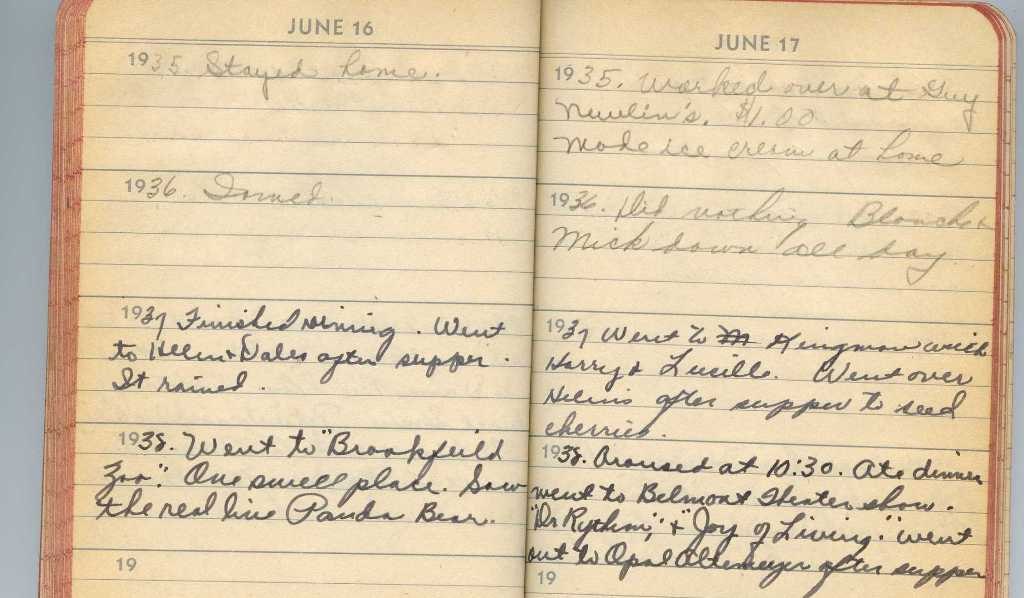 JUNE 16
1935. Stayed home.
1936. Ironed.
1937 Finished ironing. Went
to Helen & Dales after supper.
It rained.
1938. Went to "Brookfeild
Zoo". One swell place. Saw
the real live Panda Bear.
19
JUNE 17
1935. Worked over at Guy
Newlin's. $1.00
Made ice cream at home
1936. Did nothing Blanche &
Mick down all day.
1937 Went to Kingman with
Harry & Lucille. Went over
Helens after supper to seed
cherries.
1938. Aroused at 10:30. Ate dinner
went to Belmont Theater show.
"Dr Rythm," & "Joy of Living." went
out to Opal Altemeyer after supper
19